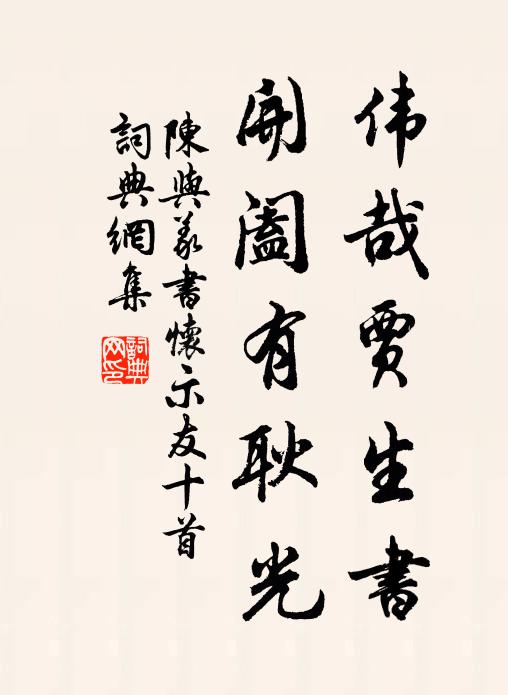 伟哉贾生書
開阖有耿光
陳與義書懷示友十首
詞典網集
詞典网印